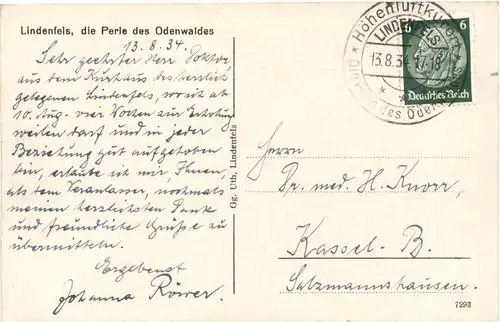 Lindenfels, die Perle des Odenwaldes
13.8.34.
Sehr geehrter Herr Doktor,
aus dem Kurhaus des herrlich
gelegenen Lindenfels, wo ich ab
10. Aug. vier Wochen zur Erholung
weilen darf und in jeder
Beziehung gut aufgehoben
bin, erlaube ich mir, Ihnen,
als dem Veranlasser, nochmals
meinen herzlichsten Dank
und freundliche Grüße zu
übermitteln.
Ergebenst
Johanna Röwer.
Og. Uth, Lindenfels
Höhenluftkurort
LINDENFELS
13.8.34.17-18
Die Perle des Odenwaldes
6 6
Deutsches Reich
Herrn
Dr. med. H. Knorr,
Kassel-B.
Salzmannshausen.
7293